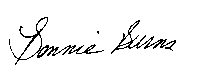 Bonnie Burns